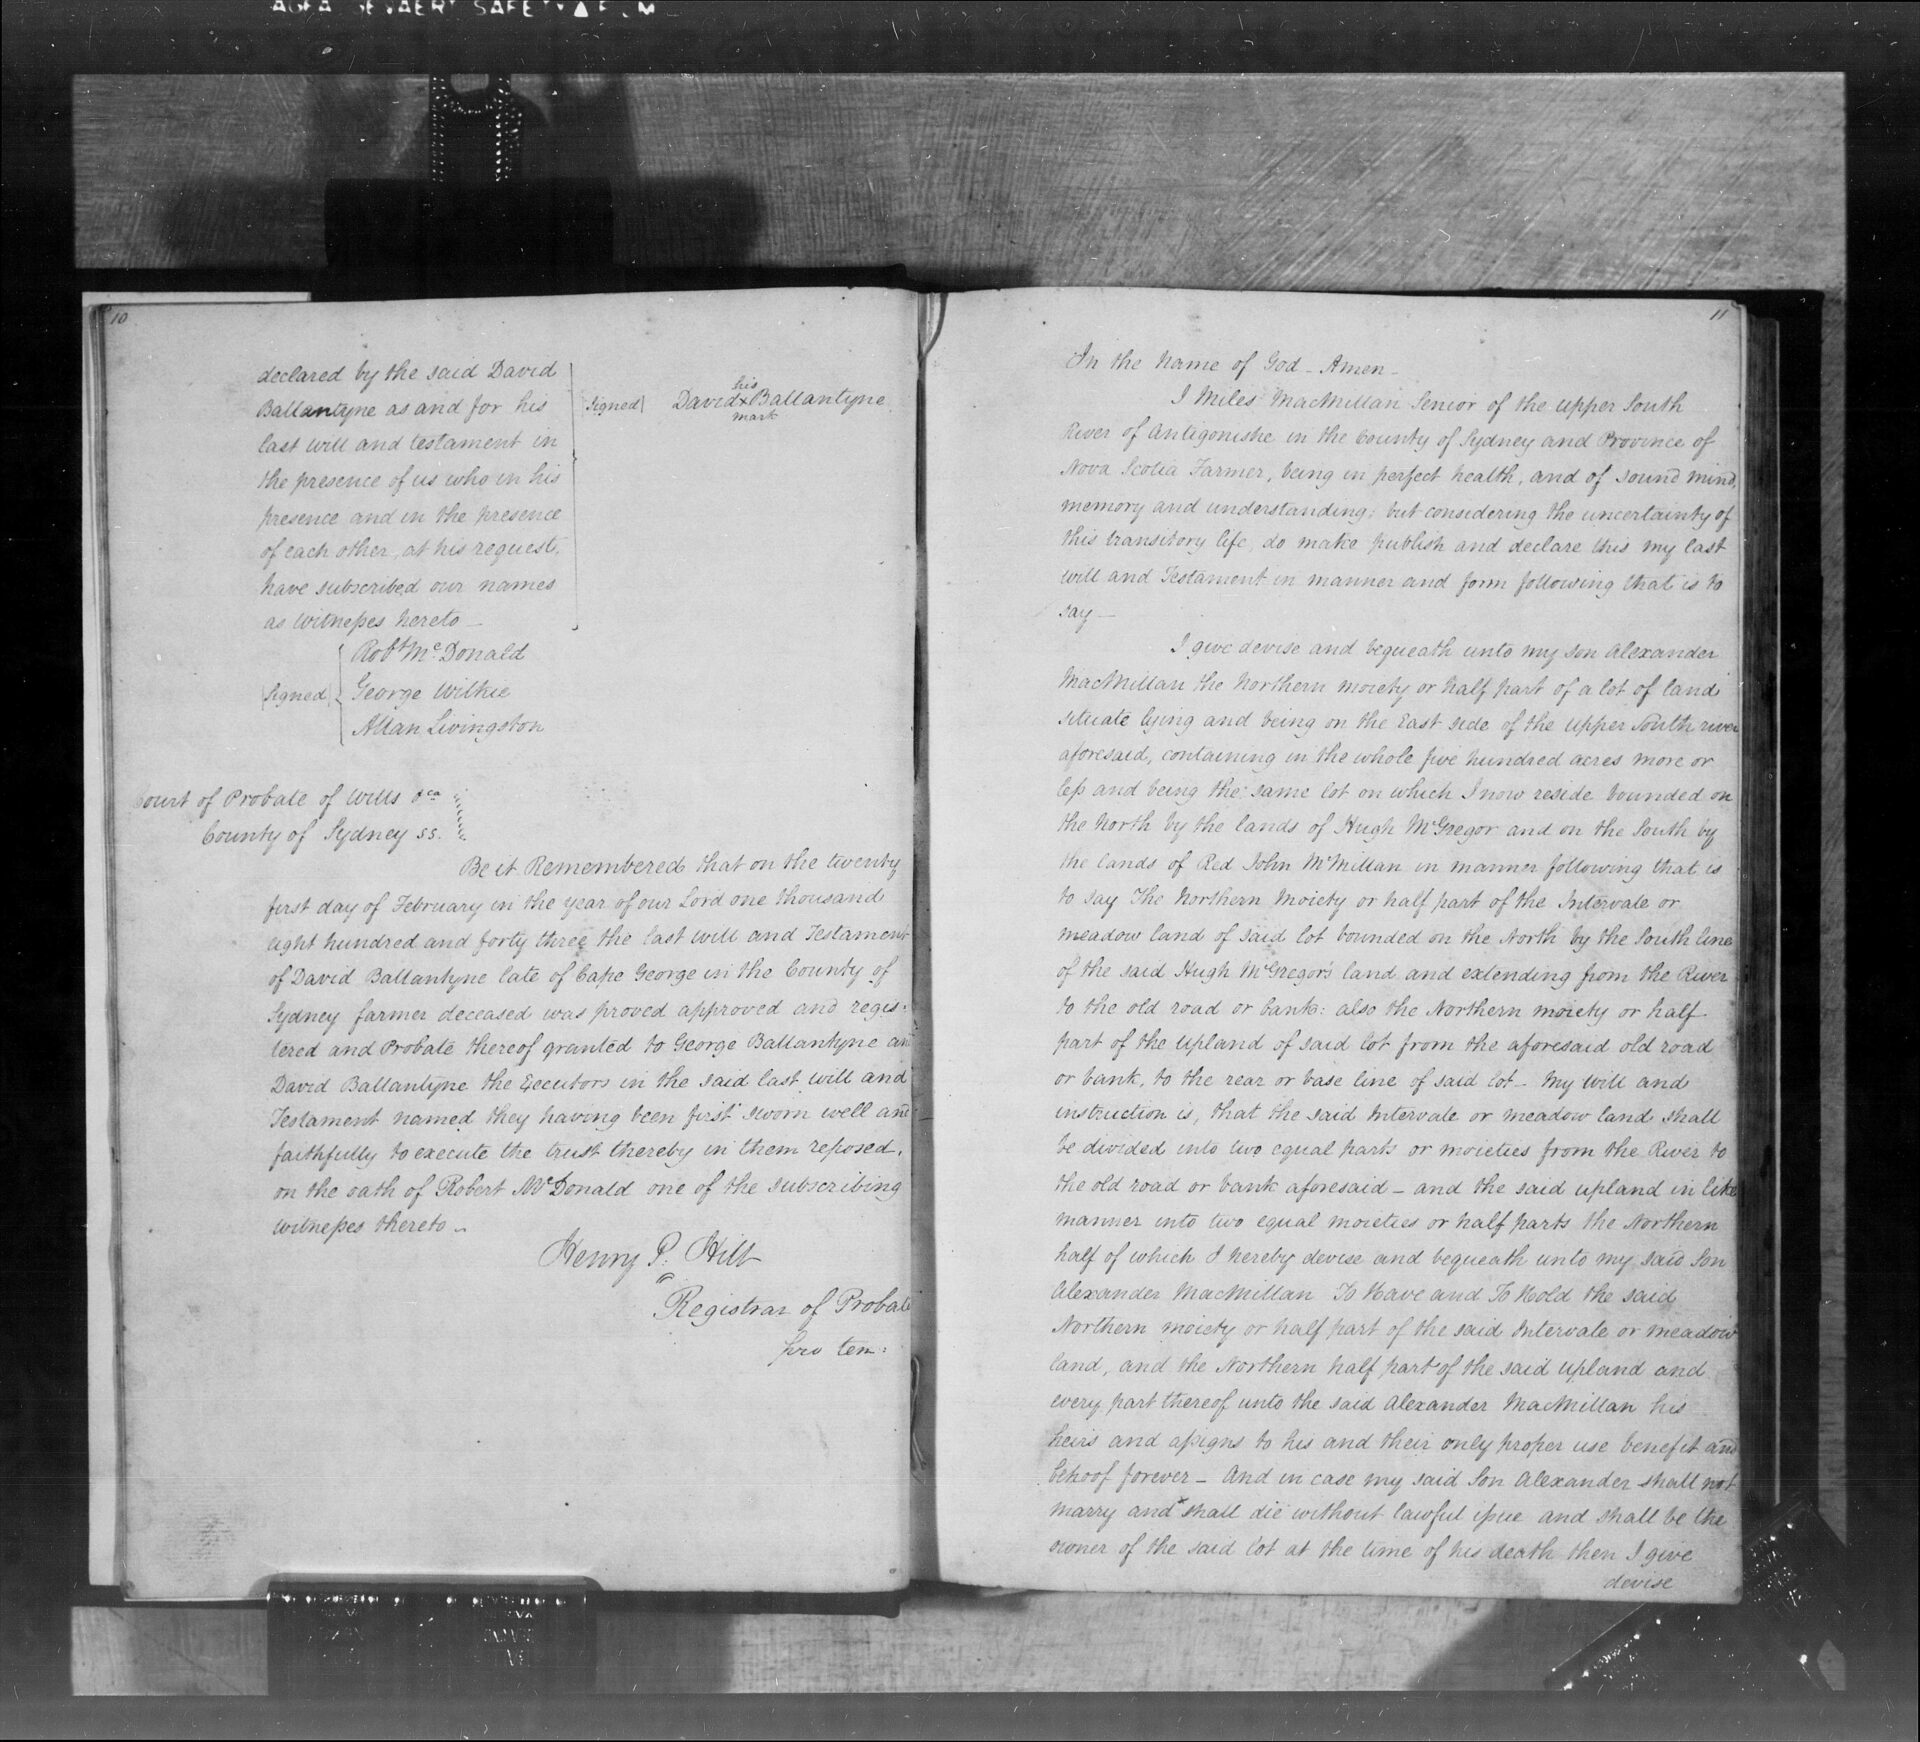 10
declared by the said David
Ballantyne as and for his
last will and testament in
the presence of us who in his
presence and in the presence
of each other, at his request,
have subscribed our names
as Witnesses hereto _
(Signed) David his x mark Ballantyne
Robt McDonald
(Signed) George Wilkie
Allan Livingston
Court of Probate of Wills &ca
County of Sydney SS.
Be it Remembered that on the twenty
first day of February in the year of our Lord one thousand
eight hundred and forty three the last will and Testament
of David Ballantyne late of Cape George in the County of
Sydney farmer deceased was proved approved and regis-
tered and Probate thereof granted to George Ballantyne and
David Ballantyne the Executors in the said last will and
Testament named they having been first sworn well and
faithfully to execute the trust thereby in them reposed,
on the oath of Robert McDonald one of the subscribing
witnesses thereto _
Henry P. Hill
Registrar of Probate
pro tem:
11
In the Name of God _ Amen _
I Miles MacMillan Senior of the Upper South
River of Antigonishe in the County of Sydney and Province of
Nova Scotia Farmer, being in perfect health, and of sound mind,
memory and understanding: but considering the uncertainty of
this transitory life, do make publish and declare this my last
will and Testament in manner and form following that is to
say _
I give devise and bequeath unto my son Alexander
MacMillan the Northern moiety or half part of a lot of land
situate lying and being on the East side of the Upper South river
aforesaid, containing in the whole five hundred acres more or
less and being the same lot on which I now reside bounded on
the North by the lands of Hugh McGregor and on the South by
the lands of Red John McMillan in manner following that is
to say The Northern Moiety or half part of the Intervale or
meadow land of said lot bounded on the North by the South line
of the said Hugh McGregor's land and extending from the River
to the old road or bank: also the Northern moiety or half
part of the upland of said lot from the aforesaid old road
or bank, to the rear or base line of said lot _ My will and
instruction is, that the said Intervale or meadow land shall
be divided into two equal parts or moieties from the River to
the old road or bank aforesaid _ and the said upland in like
manner into two equal moieties or half parts the Northern
half of which I hereby devise and bequeath unto my said Son
Alexander MacMillan To Have and To Hold the said
Northern moiety or half part of the said Intervale or meadow
land, and the Northern half part of the said upland and
every part thereof unto the said Alexander MacMillan his
heirs and assigns to his and their only proper use benefit and
behoof forever _ And in case my said Son Alexander shall not
marry and x shall die without lawful issue and shall be the
owner of the said lot at the time of his death then I give
devise